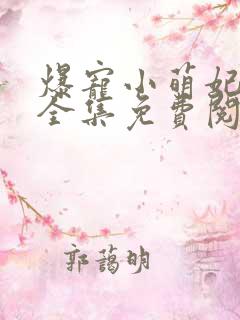 爆寵小萌妃
全集免費閱
郭蔼明